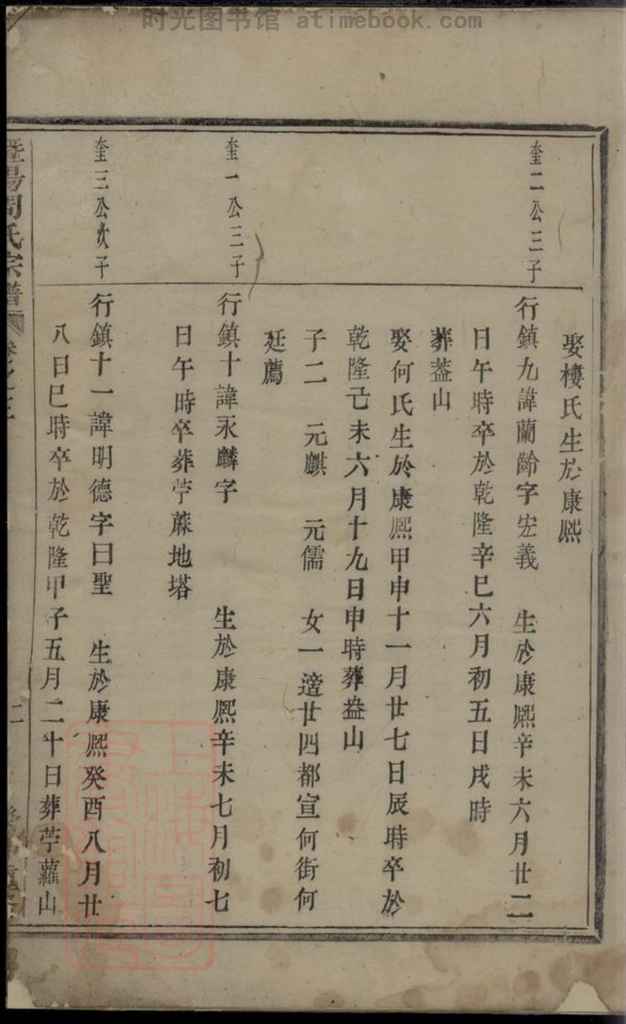 时光图书馆 atimebook.com
娶樓氏生於康熙
奎二公三子
行鎮九諱蘭齡字宏義 生於康熙辛未六月廿二
日午時卒於乾隆辛巳六月初五日戌時
葬益山
娶何氏生於康熙甲申十一月廿七日辰時卒於
乾隆己未六月十九日申時葬益山
子二 元麒 元儒 女一適廿四都宣何街何
廷薦
奎一公三子
行鎮十諱永麟字 生於康熙辛未七月初七
日午時卒葬苧蔴地塔
奎三公次子
行鎮十一諱明德字曰聖 生於康熙癸酉八月廿
八日巳時卒於乾隆甲子五月二十日葬苧蘿山
暨陽周氏宗譜
二